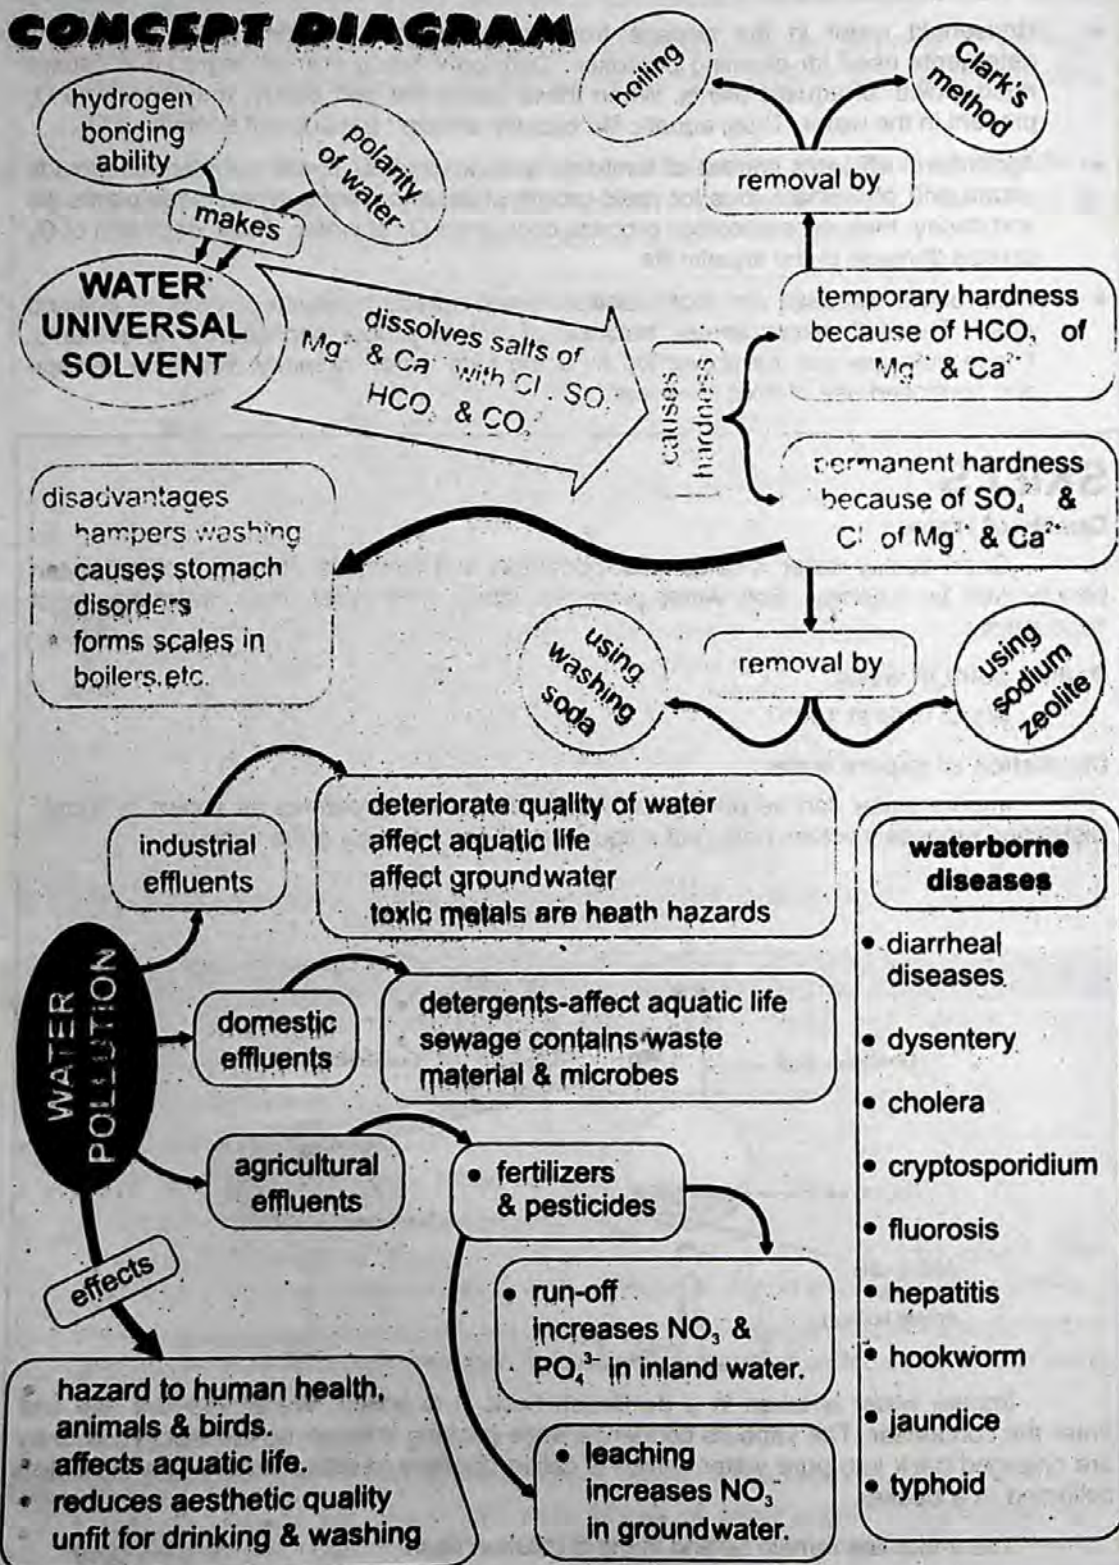 CONCEPT DIAGRAM
hydrogen
bonding
ability
polarity
of water
makes
WATER
UNIVERSAL
SOLVENT
dissolves salts of
Mg²⁺ & Ca with Cl , SO
HCO₃ & CO₃
causes
hardness
boiling
Clark's
method
removal by
temporary hardness
because of HCO₃ of
Mg & Ca²⁺
permanent hardness
because of SO₄²⁻ &
Cl of Mg²⁺ & Ca²⁺
disadvantages
hampers washing
• causes stomach
disorders
• forms scales in
boilers.etc.
removal by
using
washing
soda
using
sodium
zeolite
WATER
POLLUTION
industrial
effluents
deteriorate quality of water
affect aquatic life
affect groundwater
toxic metals are heath hazards
domestic
effluents
detergents-affect aquatic life
sewage contains waste
material & microbes
agricultural
effluents
• fertilizers
& pesticides
• run-off
increases NO₃ &
PO₄³⁻ in inland water.
• leaching
increases NO₃⁻
in groundwater.
effects
• hazard to human health,
animals & birds.
• affects aquatic life.
• reduces aesthetic quality
• unfit for drinking & washing
waterborne
diseases
• diarrheal
diseases
• dysentery
• cholera
• cryptosporidium
• fluorosis
• hepatitis
• hookworm
• jaundice
• typhoid